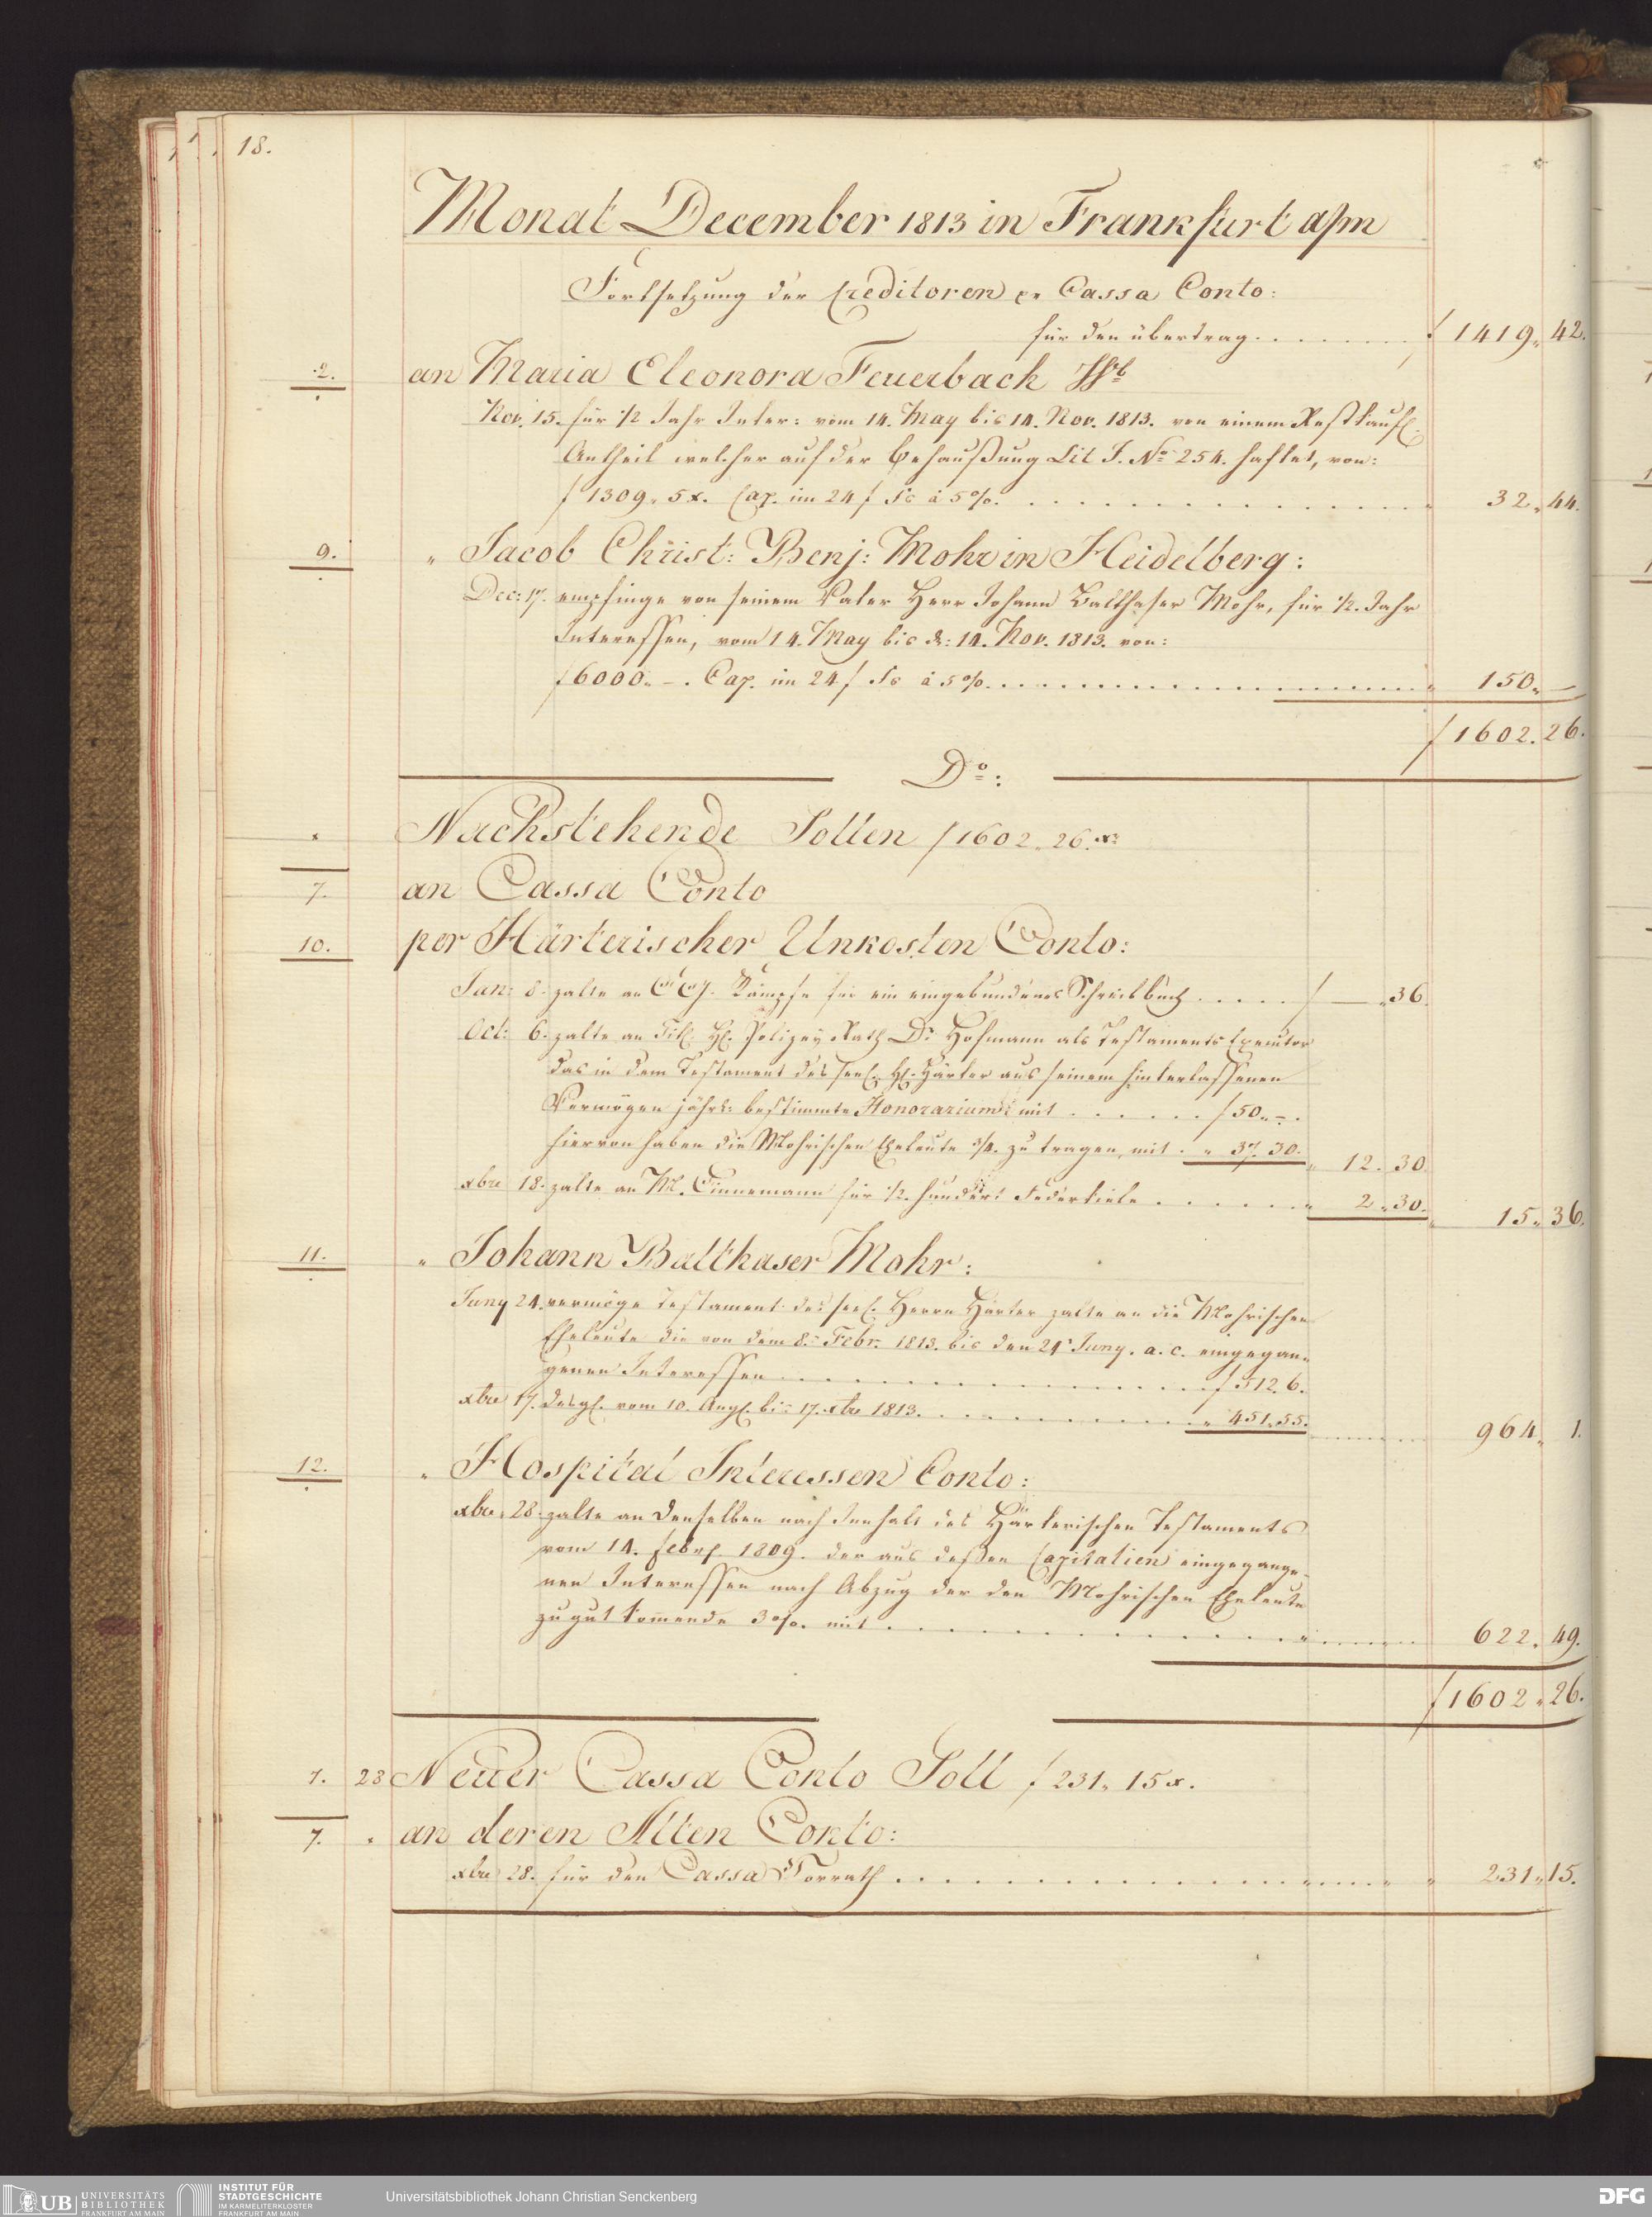 18.
Monat December 1813 in Frankfurt a/m
Fortsetzung der Creditoren pr Cassa Conto:
für den übertrag . . . . . . . . f 1419„ 42.
2. an Maria Eleonora Feuerbach
Nov. 15. für 1/2 Jahr Inter: vom 14. May bis 14. Nov. 1813. von einem Restkauf
Antheil welcher auf der Behaußung Lit J. No 254. haftet, von:
f 1309„ 5x. Cap. im 24 f Fs à 5%. . . . . . . . . . . . . . . . „ 32„ 44.
9. „ Jacob Christ: Benj: Mohr in Heidelberg:
Dec: 17. empfinge von seinem Vater Herr Johann Balthaser Mohr, für 1/2. Jahr
Interessen, vom 14. May bis d: 14. Nov. 1813. von:
f 6000„ – . Cap. im 24 f Fs à 5%. . . . . . . . . . . . . . . . „ 150„ —
f 1602. 26.
Do:
Nachstehende Sollen f 1602„ 26.xr
7. an Cassa Conto
10. per Härterischer Unkosten Conto:
Jan: 8. zalte an Kämpfe für ein eingebundenes Schreibbuch . . . . . f — „ 36.
Oct: 6. zalte an Titl. H. Polizey Rath Dr Hofmann als Testaments Executor
das in dem Testament des seel. H. Härter aus seinem hinterlassenen
Vermögen jährl: bestimmte Honorarium mit . . . . . . f 50„ –.
hiervon haben die Mohrischen Eheleute 3/4. zu tragen, mit . „ 37. 30. „ 12. 30.
xbre 18. zalte an M. Cinnemann für 1/2. hundert Federkiele . . . . . . „ 2„ 30. „ 15„ 36.
11. „ Johann Balthaser Mohr:
Juny 24. vermöge Testament des seel. Herrn Härter zalte an die Mohrischen
Eheleute die von dem 8. Febr. 1813. bis den 24 Juny. a. c. eingegan„
genen Interessen . . . . . . . . . . . . . . . f 512„ 6.
xbre 17. desgl. vom 10. Augl. bis 17. xbre 1813. . . . . . . . . „ 451„ 55. . . . . 964„ 1.
12. „ Hospital Interessen Conto:
xbre 28. zalte an denselben nach Innhalt des Härterischen Testaments
vom 14. febr. 1809. der aus deßen Capitalien eingegange„
nen Interessen nach Abzug der den Mohrischen Eheleute
zugut komende 3%. mit . . . . . . . . . . . . . . „ . . . . . 622„ 49.
f 1602„ 26.
7. 28 Neuer Cassa Conto Soll f 231„ 15x.
7. „ an deren Alten Conto:
xbre 28. für den Cassa Vorrath . . . . . . . . . . . . . . . . „ 231„ 15.
UB UNIVERSITÄTS
BIBLIOTHEK
FRANKFURT AM MAIN
INSTITUT FÜR
STADTGESCHICHTE
IM KARMELITERKLOSTER
FRANKFURT AM MAIN
Universitätsbibliothek Johann Christian Senckenberg
DFG